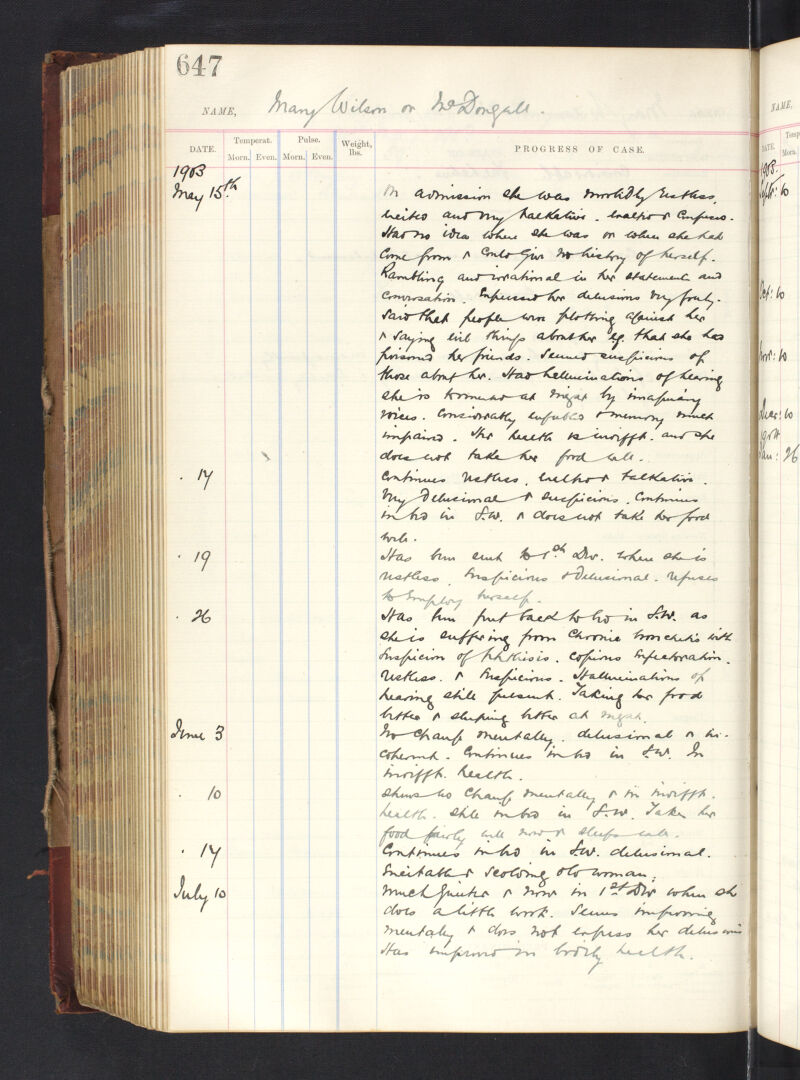 647
NAME, Mary Wilson or McDongall.
DATE. Temperat. Morn. Even. Pulse. Morn. Even. Weight, lbs. PROGRESS OF CASE.
1903
May 15th On admission she was morbidly restless,
excited and very talkative. & Confused.
Had no idea where she was or where she had
come from & could give no history of herself.
Rambling and irrational in her statements and
conversation. Expressed her delusions very freely.
Said that people were plotting against her
& saying evil things about her eg. that she has
poisoned her friends. Seemed suspicious of
those about her. Had hallucinations of hearing
she is tormented at night by imaginary
voices. Considerably enfeebled & memory much
impaired. Her health is indifft. and she
does not take her food well.
. 17 Continues restless, excited & talkative.
Very delusional & suspicious. Continues
in bed in S.W. & does not take her food
well.
. 19 Has been sent to 1st Div. where she is
restless, suspicious & delusional. refuses
to employ herself.
. 26 Has been put back to bed in S.W. as
she is suffering from Chronic bronchitis with
suspicion of phthisis. Copious expectoration.
restless. & suspicious. Hallucinations of
hearing still present. Taking her food
better & sleeping better at night.
June 3 No change mentally. delusional & in-
coherent. Continues in bed in S.W. In
indifft. health.
. 10 Shews no change mentally & in indifft.
health. Still in bed in S.W. Takes her
food fairly well now & sleeps well.
. 17 Continues in bed in S.W. delusional.
Excitable & scolding old woman.
July 10 Much quieter & now in 1st Div where she
does a little work. Seems improving
mentally & does not express her delusions
Has improved in bodily health.
NAME,
DATE. Temp
Morn.
1903.
Sept: 10
Oct: 10
Nov: 10
Dec: 10
1904
Jan: 26